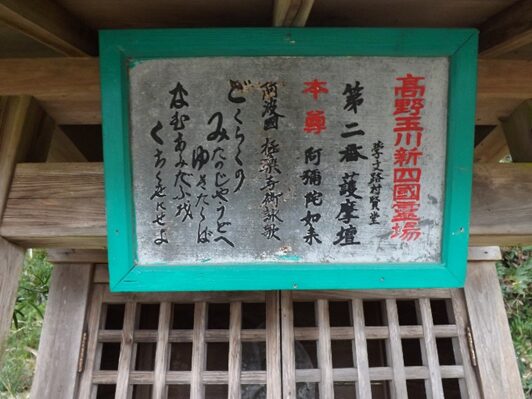 高野玉川新四國霊場
第二番 護摩壇
本尊 阿彌陀如来
阿波國 極楽寺御詠歌
ごくらくの
みだのじやうどへ
ゆきたくば
なむあみだぶつ
くちくせにせよ